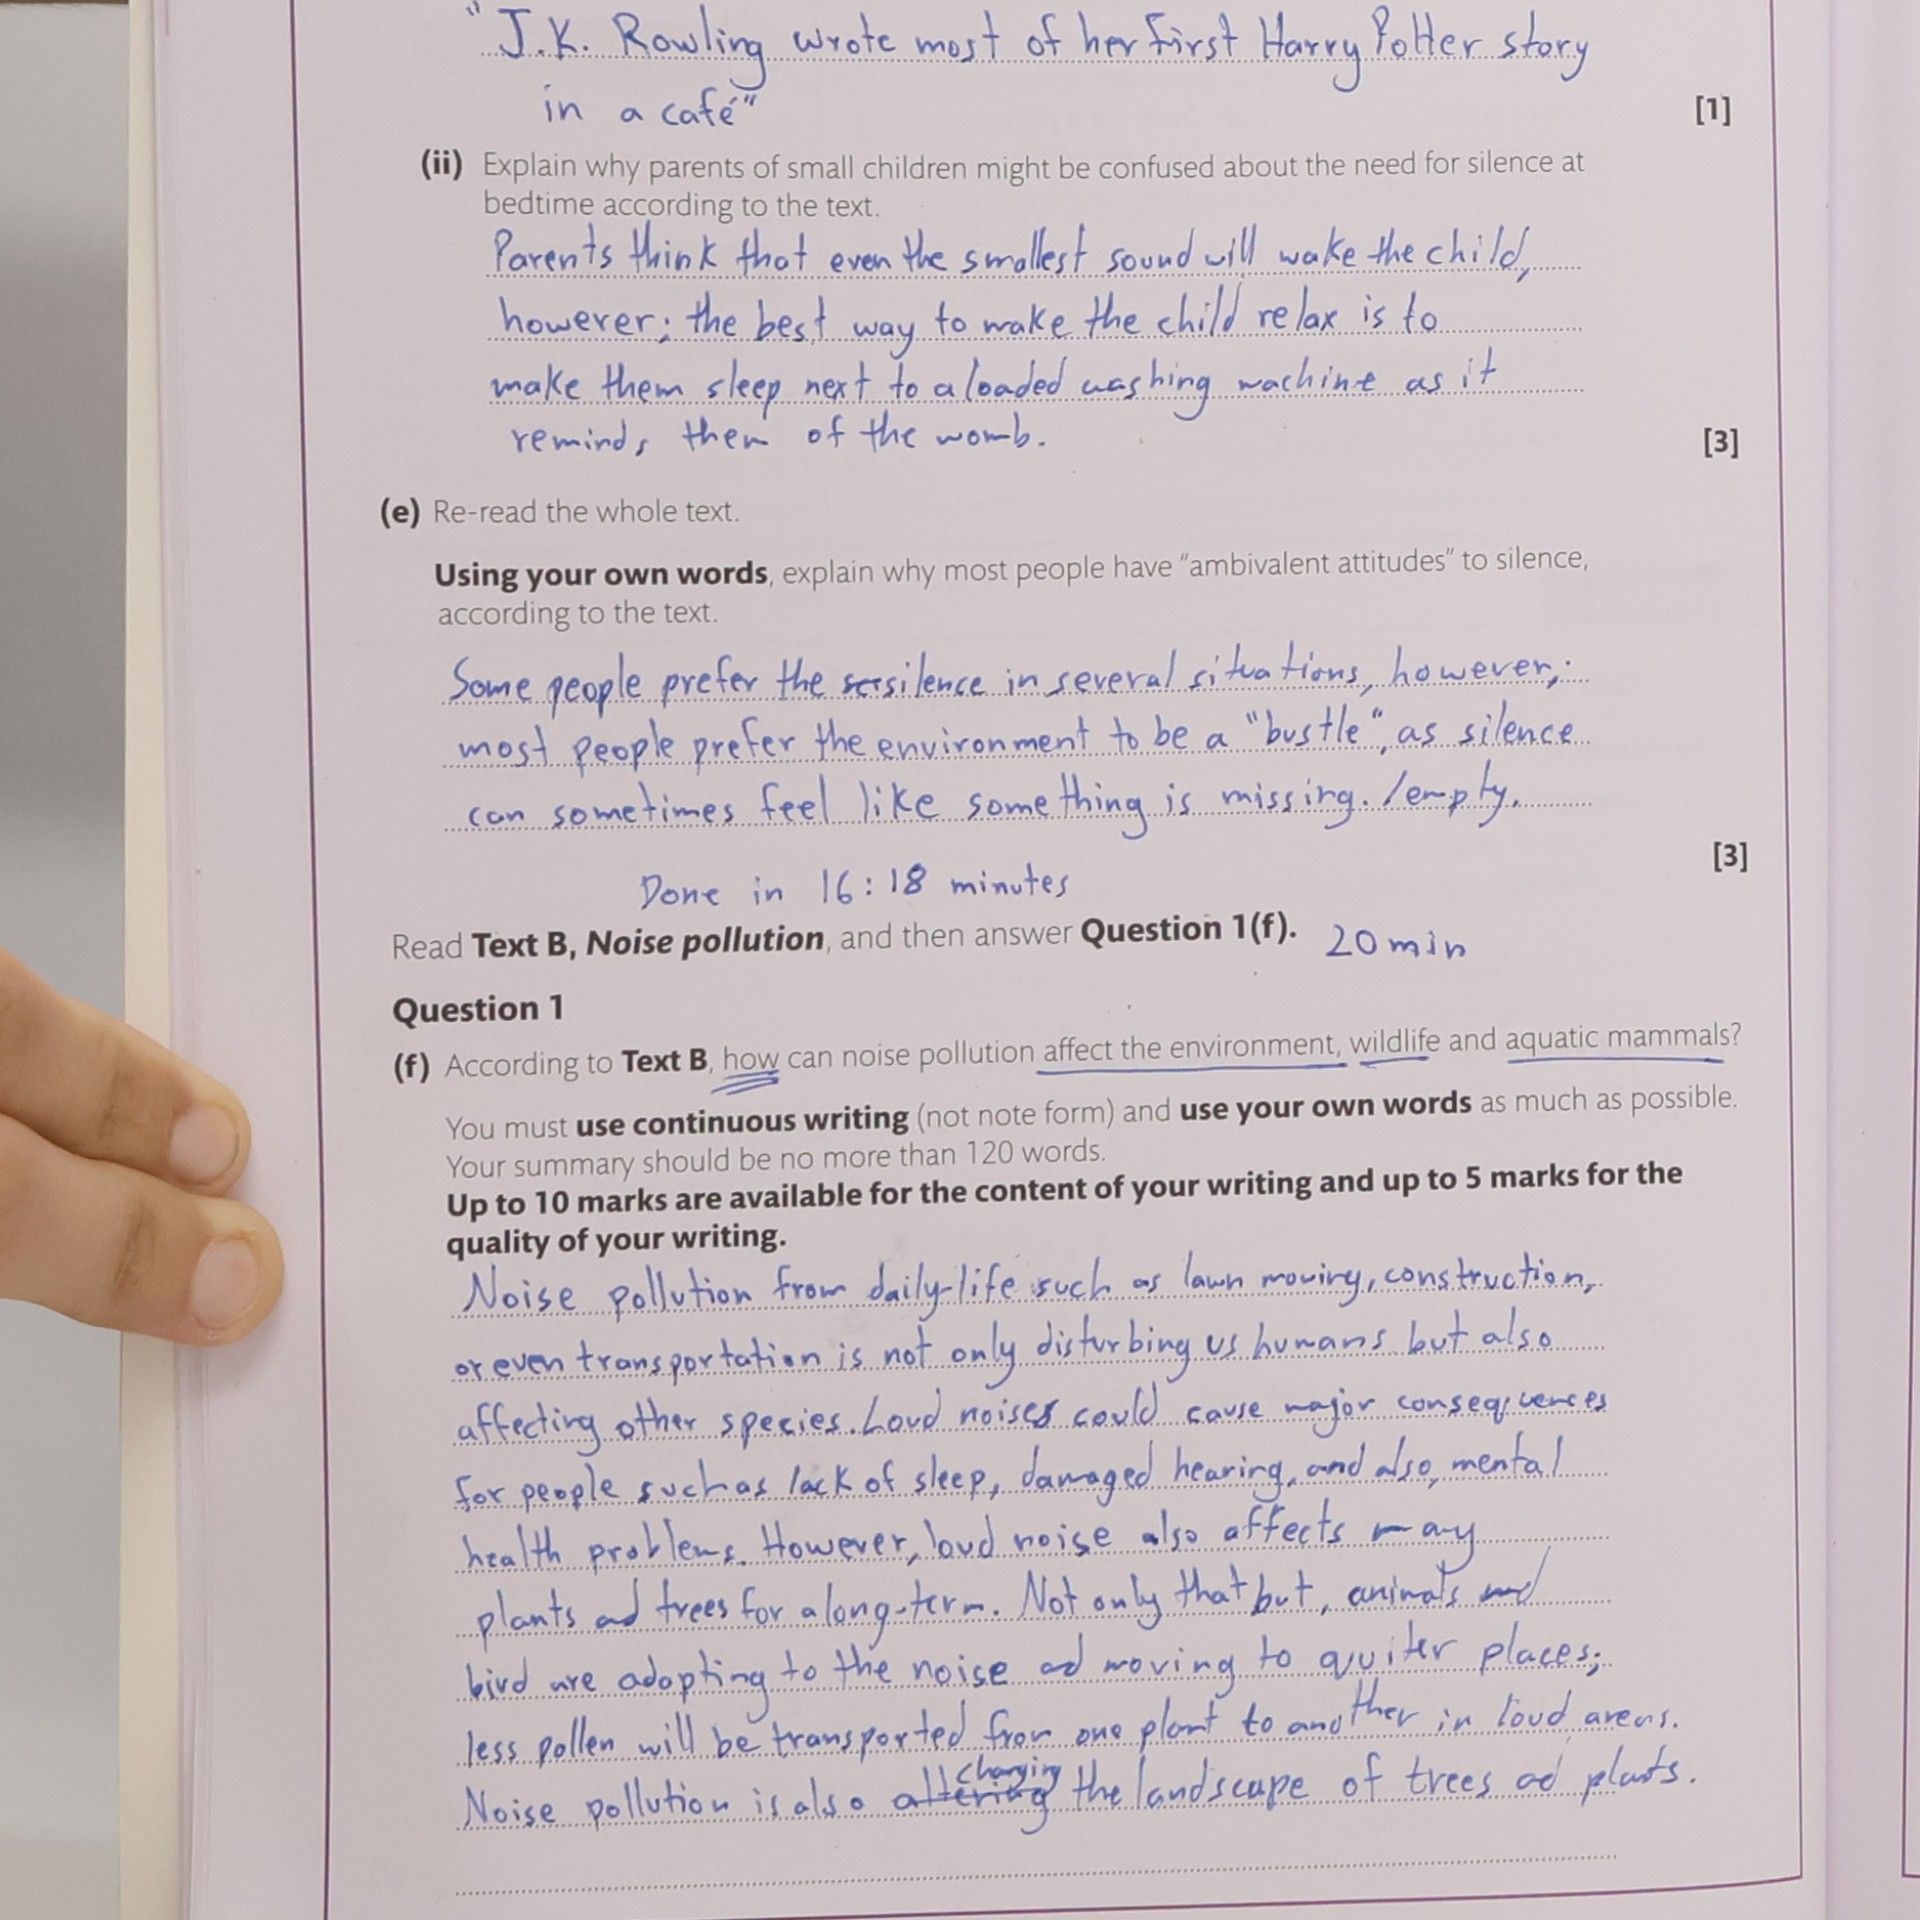 "J.K. Rowling wrote most of her first Harry Potter story
in a café"
[1]
(ii) Explain why parents of small children might be confused about the need for silence at
bedtime according to the text.
Parents think that even the smallest sound will wake the child,
however; the best way to make the child relax is to
make them sleep next to a loaded washing machine as it
reminds them of the womb.
[3]
(e) Re-read the whole text.
Using your own words, explain why most people have "ambivalent attitudes" to silence,
according to the text.
Some people prefer the silence in several situations, however;
most people prefer the environment to be a "bustle", as silence
can sometimes feel like something is missing. /empty.
[3]
Done in 16:18 minutes
Read Text B, Noise pollution, and then answer Question 1(f). 20 min
Question 1
(f) According to Text B, how can noise pollution affect the environment, wildlife and aquatic mammals?
You must use continuous writing (not note form) and use your own words as much as possible.
Your summary should be no more than 120 words.
Up to 10 marks are available for the content of your writing and up to 5 marks for the
quality of your writing.
Noise pollution from daily-life such as lawn moving, construction,
or even transportation is not only disturbing us humans but also
affecting other species. Loud noises could cause major consequences
for people such as lack of sleep, damaged hearing, and also, mental
health problems. However, loud noise also affects may
plants ad trees for a long-term. Not only that but, animals and
bird are adopting to the noise ad moving to quiter places;
less pollen will be transported from one plant to another in loud areas.
Noise pollution is also altering changing the landscape of trees ad plants.